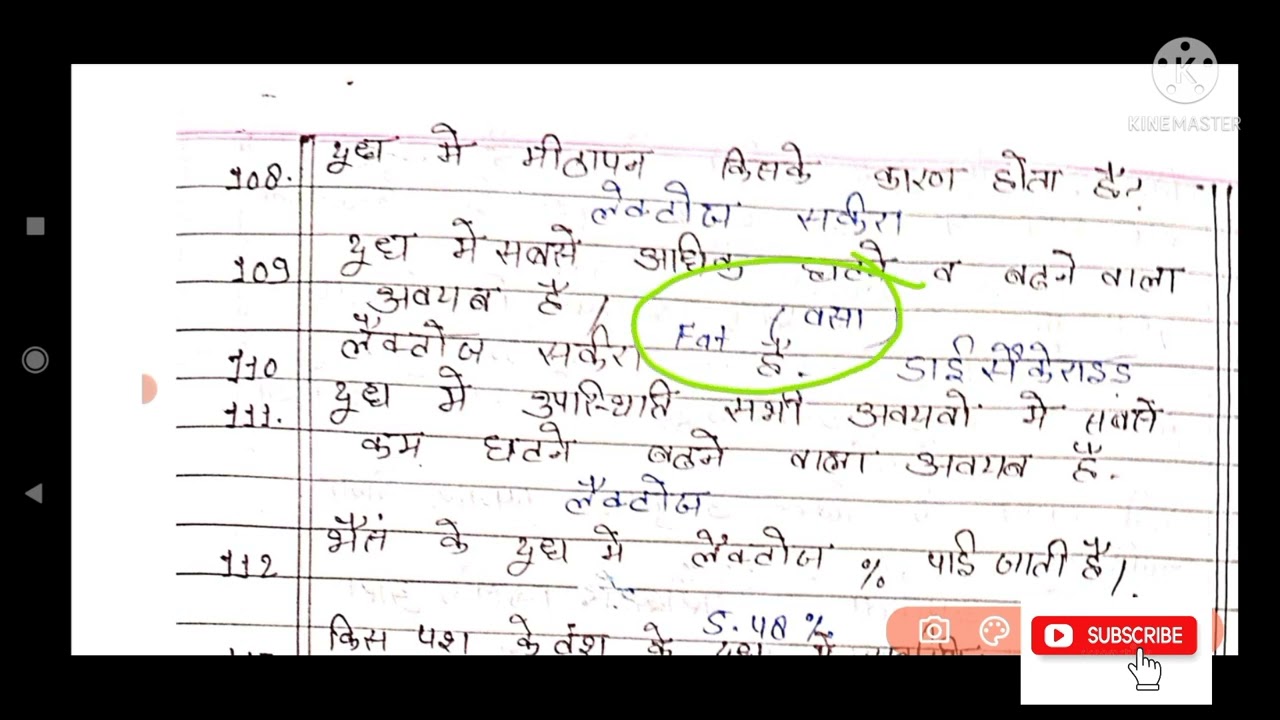 KINEMASTER
108. दूध मे मीठापन किसके कारण होता है?
लेक्टोज सर्करा
109 दूध में सबसे अधिक घटने व बढने वाला
अवयब है /
Fat (वसा
है.
110 लैक्टोज सर्करा डाई सैकेराइड
111. दूध मे उपस्थिति सभी अवयवो मे सबसे
कम घटने बढने वाला अवयब है.
लैक्टोज
112 भैंस के दूध में लेक्टोज % पाई जाती है/.
5.48 %
किस पशु के वंश के दूध में
SUBSCRIBE